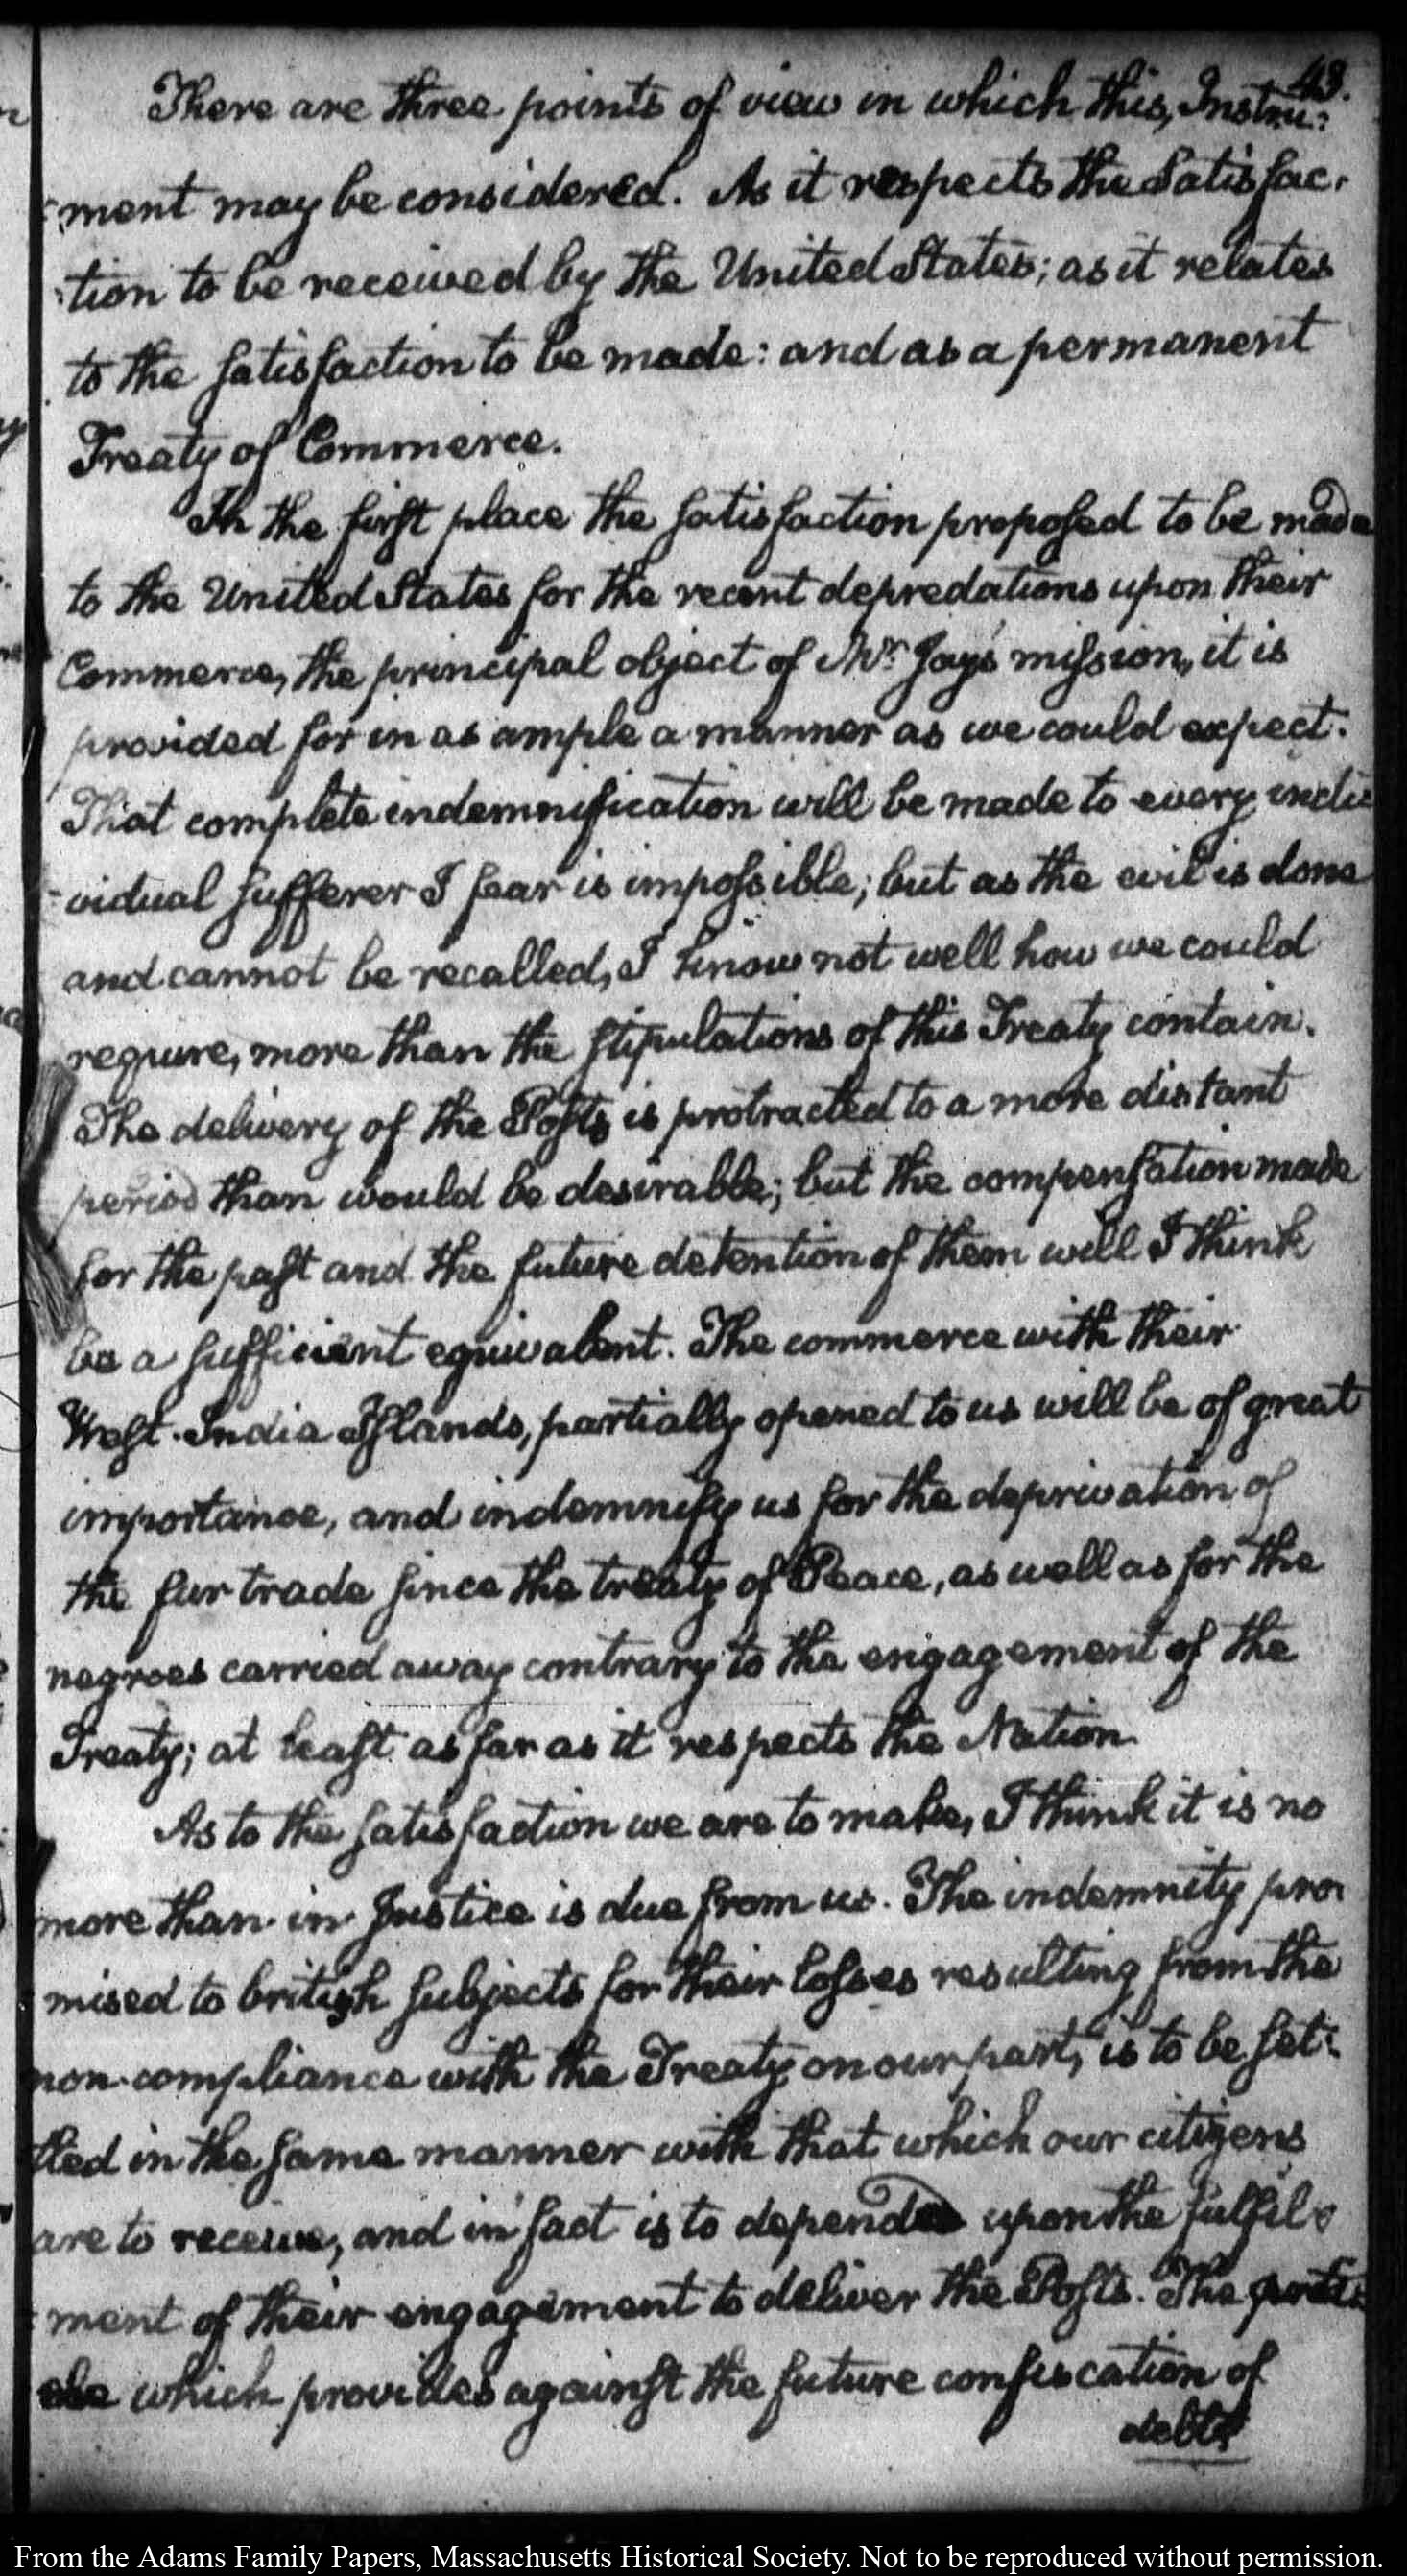 43.
There are three points of view in which this, Instru:
:ment may be considered. As it respects the Satisfac,
:tion to be received by the United States; as it relates
to the satisfaction to be made: and as a permanent
Treaty of Commerce.
In the first place the satisfaction proposed to be made
to the United States for the recent depredations upon their
Commerce, the principal object of Mr. Jay's mission, it is
provided for in as ample a manner as we could expect.
That complete indemnification will be made to every indi
-vidual sufferer I fear is impossible; but as the evil is done
and cannot be recalled, I know not well how we could
require, more than the stipulations of this Treaty contain.
The delivery of the Posts is protracted to a more distant
period than would be desirable; but the compensation made
for the past and the future detention of them will I think
be a sufficient equivalent. The commerce with their
West-India Islands, partially opened to us will be of great
importance, and indemnify us for the deprivation of
the fur trade since the treaty of Peace, as well as for the
negroes carried away contrary to the engagement of the
Treaty; at least as far as it respects the Nation.
As to the satisfaction we are to make, I think it is no
more than in Justice is due from us. The indemnity pro
mised to british subjects for their losses resulting from the
non-compliance with the Treaty on our part, is to be set:
tled in the same manner with that which our citizens
are to receive, and in fact is to depend upon the fulfil:
ment of their engagement to deliver the Posts. The
which provides against the future confiscation of
debts
From the Adams Family Papers, Massachusetts Historical Society. Not to be reproduced without permission.